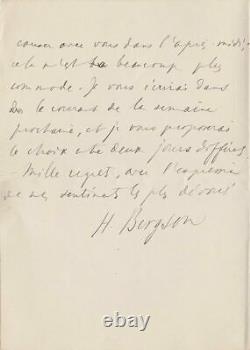 causer avec vous dans l'après-midi,
cela m'est beaucoup plus
commode. Je vous écrirai dans
le courant de la semaine
prochaine, et je vous proposerai
le choix entre deux jours différents
Mille regrets, avec l'expression
de mes sentiments les plus dévoués
H. Bergson
ebay